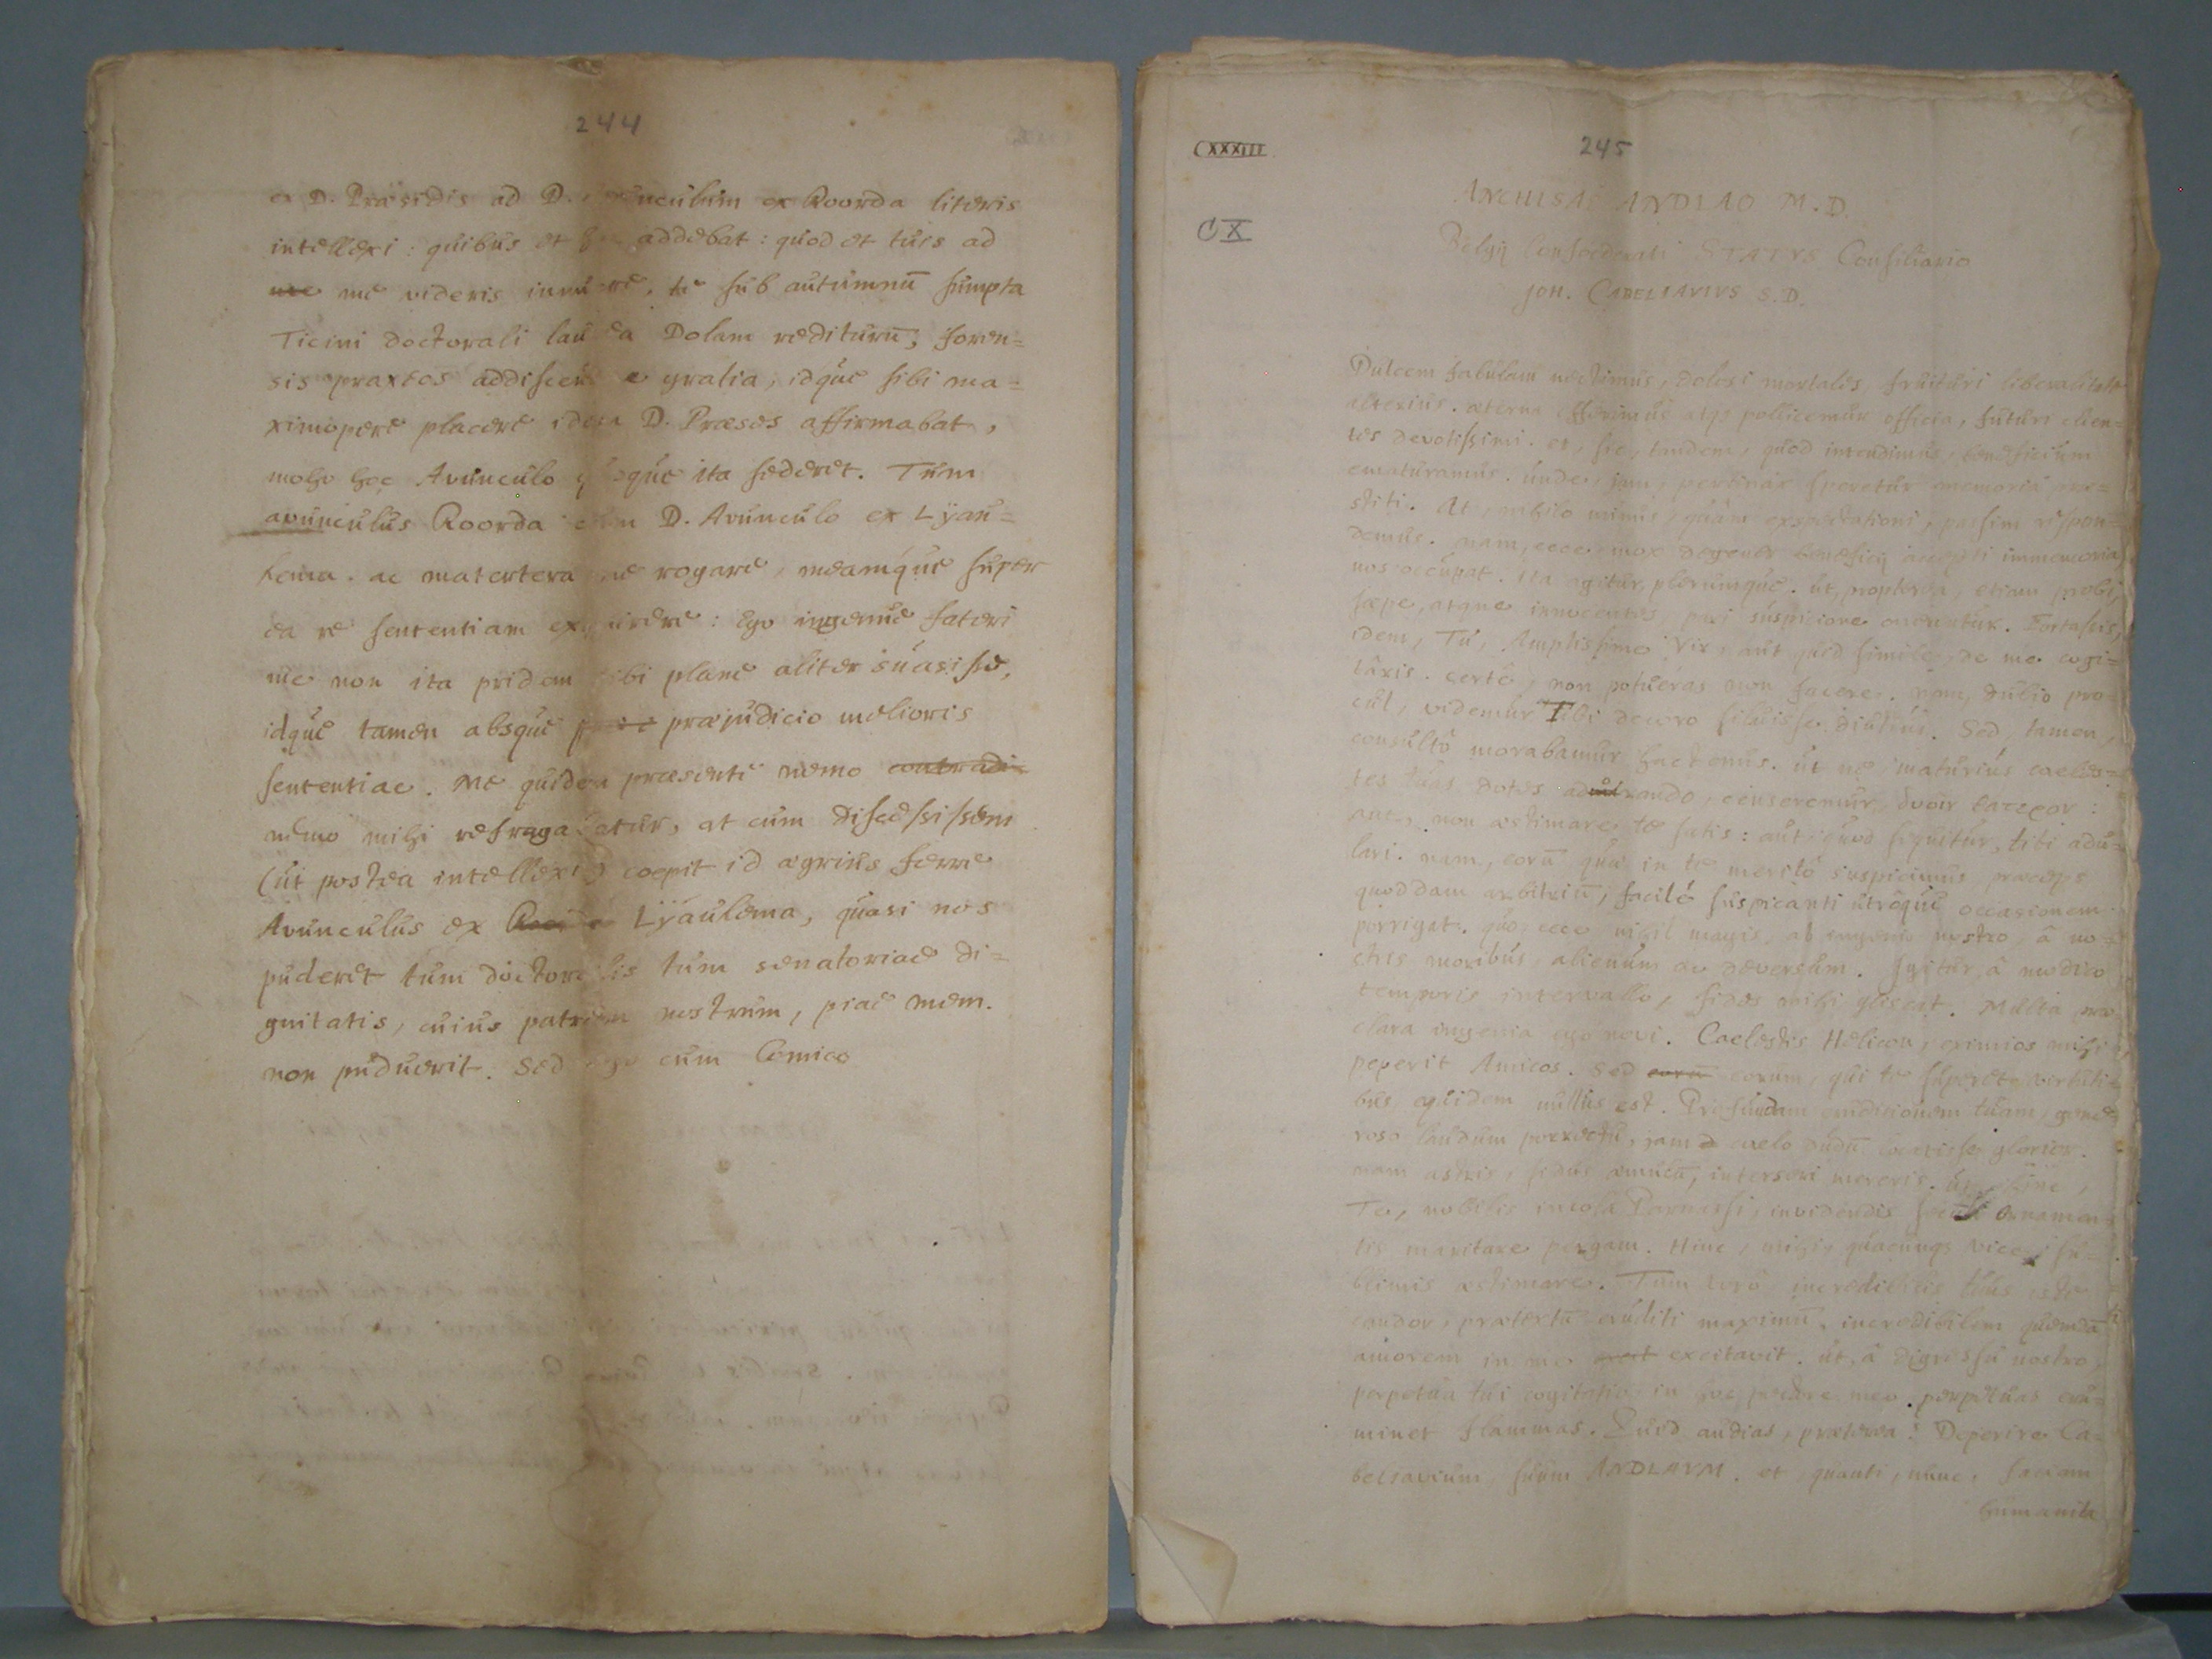 244
ex D. Praesidis ad D. Avunculum ex Roorda literis
intellexi: quibus et hoc addebat: quod et tuis ad
me me videris innuere, te sub autumnū sumpta
Ticini doctorali laurea Dolam rediturū, foren=
sis praxeos addiscendae gratia, idque sibi ma=
ximopere placere idem D. Praeses affirmabat,
modo hoc Avunculo quoque ita sederet. Tum
avunculus Roorda cum D. Avunculo ex Lÿau=
kema. ac matertera me rogare, meamque super
ea re sententiam exquirere: Ego ingenue fateri
me non ita pridem tibi plane aliter suasisse,
idque tamen absque praejudicio melioris
sententiae. Me quidem praesente nemo contradi
nemo mihi refragabatur, at cum discessissem
(ut postea intellexi) coepit id aegrius ferre
Avunculus ex Lÿaukema, quasi nos
puderet tum doctoralis tum senatoriae di=
gnitatis, cuius patrem nostrum, piae mem.
non puduerit. Sed ego cum Comico
CXXXIII
245
CX
ANCHISAE ANDLAO M.D.
Belgij Confoederati STATVS Consiliario
JOH. CABELIAVIVS S.D.
Dulcem fabulam nectimus, dolosi mortales fruituri liberalitate
alterius. aeterna offerimus atqз pollicemur officia, futuri clien=
tes devotissimi. et, sic, tandem, quod intendimus, beneficium
ematuramus. unde, jam, pertinax speretur memoria prae=
stiti. At, nihilo minus, quam exspectationi, passim respon=
demus. nam, ecce, mox degener beneficij accepti immemoria
nos occupat. ita agitur, plerumque. ut, propterea, etiam probi,
saepe, atque innocentes, pari suspicione onerentur. Fortassis,
idem, Tu, Amplissime Vir, aut quid simile, de me cogi=
taris. certe, non potueras non facere. nam, dubio pro=
cul, videmur Tibi decoro siluisse diutius. Sed, tamen,
consulto morabamur hactenus. ut ne, maturius caeles=
tes tuas dotes admirando, censeremur, :
aut, non aestimare te satis: aut, quod sequitur, tibi adu=
lari. nam, eorū quae in te merito suspicimus, praeceps
quoddam arbitriū, facile suspicanti utrique occasionem
porrigat. quo, ecce nihil magis, ab ingenio nostro, à no=
stris moribus, alienum ac adversum. Igitur, à modico
temporis intervallo, fides mihi gliscit. Multa prae=
clara ingenia ego novi. Caelestis Helicon, eximios mihi
peperit Amicos. Sed eorū eorum, qui te superet virtuti=
bus equidem nullus est. Profundam eruditionem tuam, gene=
roso laudum provectu, jam caelo dudū locavisse glorior.
nam astris, sidus, interseri mereris. ut, sine,
Te, nobilis incola Parnassi, invidendis ornamen=
tis maritare pergam. Hinc, mihi, quacunqз vice, su=
blimis aestimare. Tum vero incredibilis tuus iste
candor, praetextū eruditi maximū, incredibilem
amorem in me excitavit. ut, à digressu nostro,
perpetua tui cogitatio, in hoc pectore meo, perpetuas eru=
minet flammas. Quid audias, praeterea? Deperire Ca=
beliavium, suum ANDLAVM. et quanti, nunc, faciam
humanita